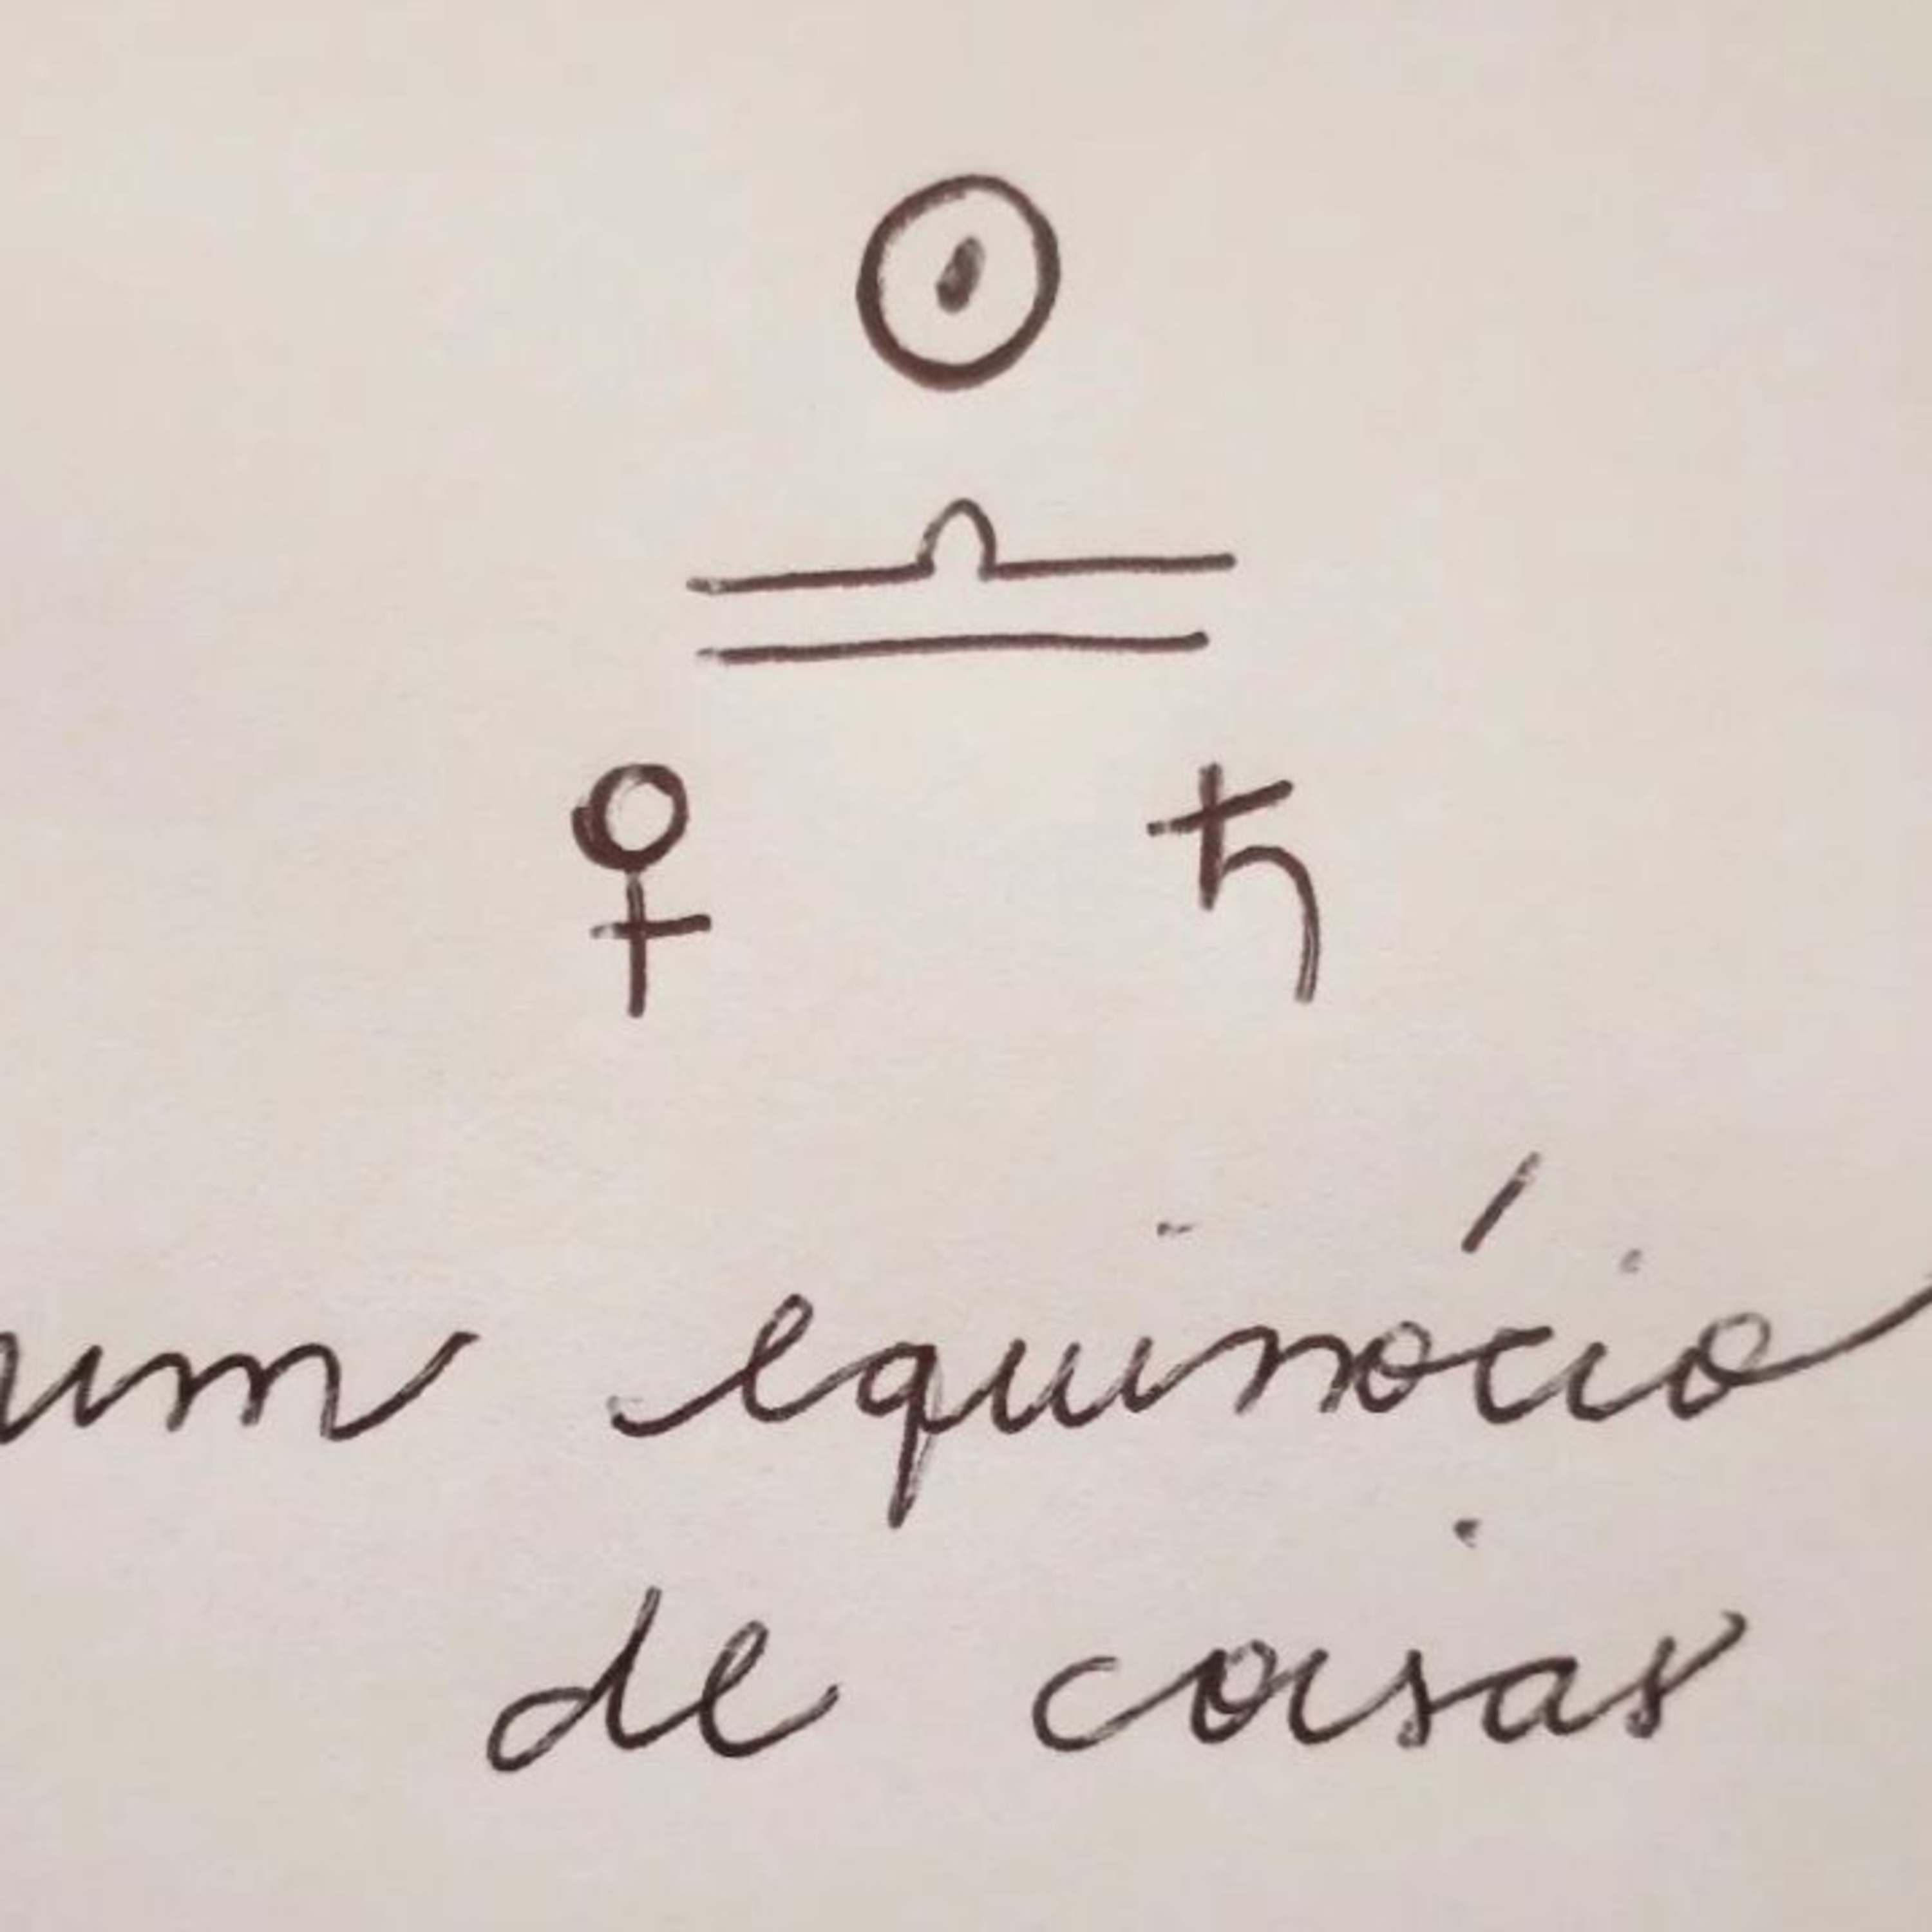 ☉
♎
♀ ♄
um equinócio
de coisas